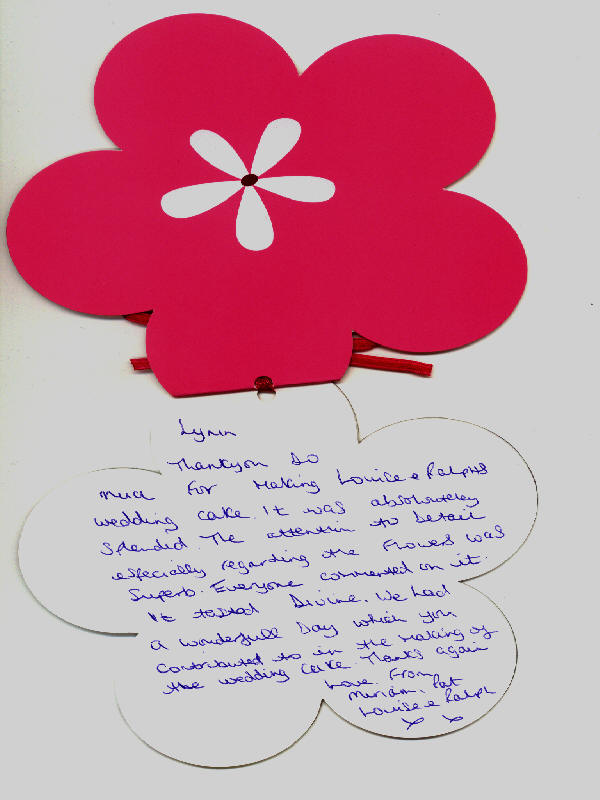 Lynn
Thankyou So
much for Making Louise & Ralphs
wedding cake. It was absolutely
Splendid. The attention to Detail
especially regarding the Flowers was
Superb. Everyone commented on it.
It tasted Divine. We had
a wonderfull Day which you
contributed to in the Making of
the wedding Cake. Thanks again
Love From
Miriam, Pat
Louise & Ralph
x x